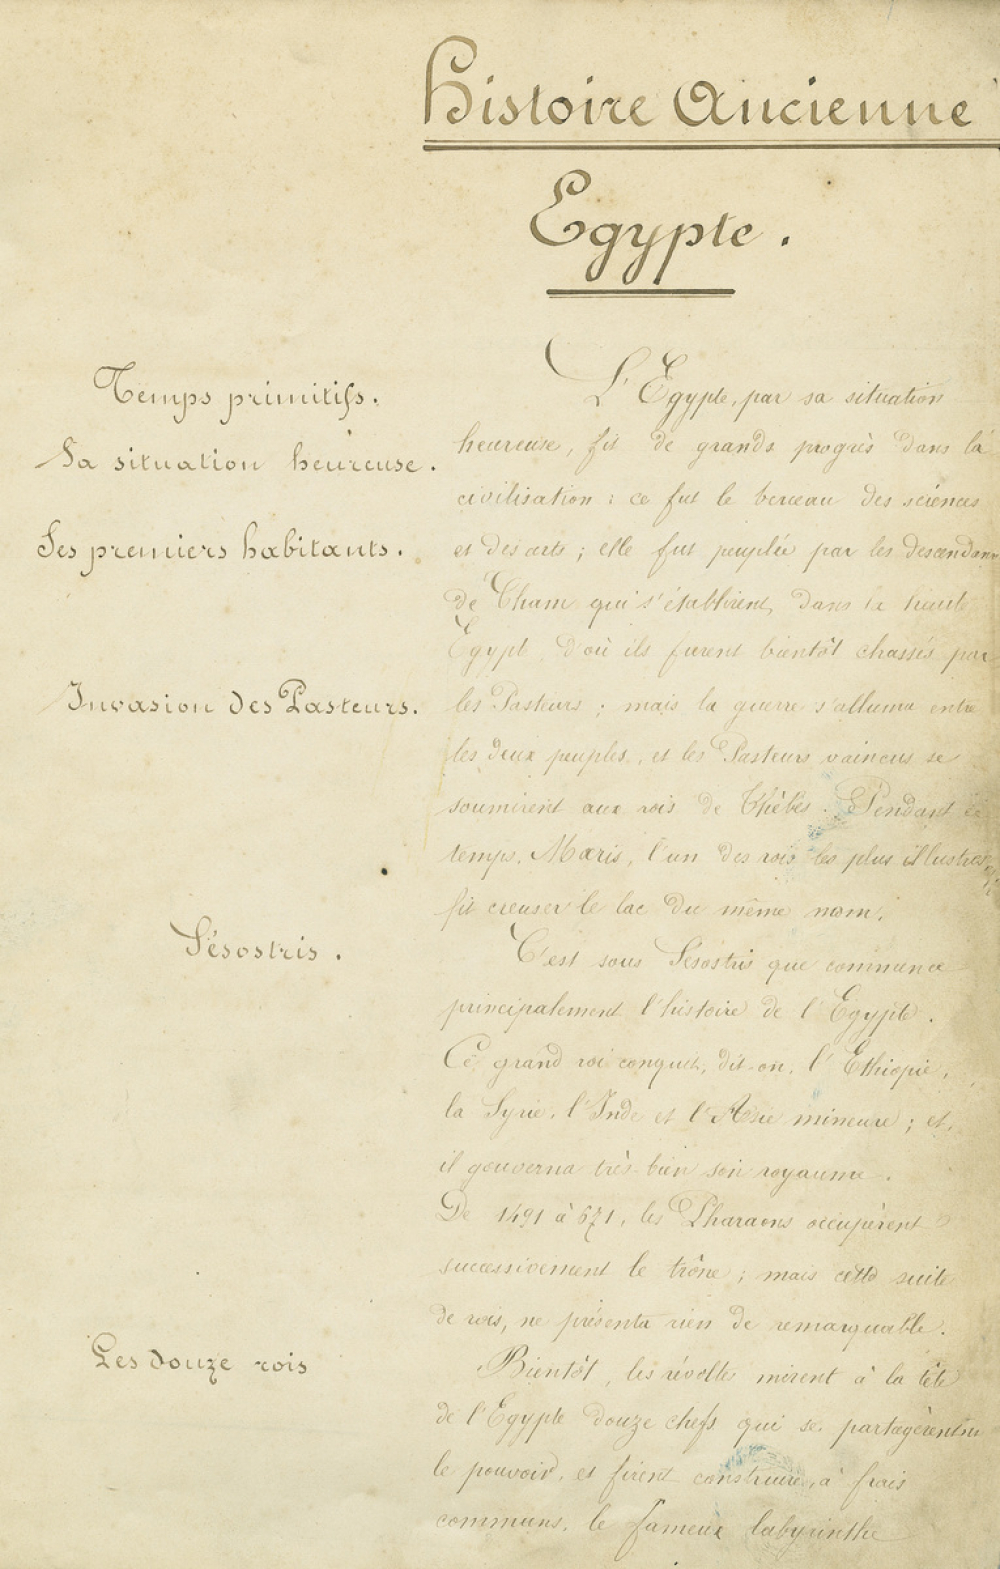 Histoire Ancienne
Egypte.
Temps primitifs.
Sa situation heureuse.
Ses premiers habitants.
Invasion des Pasteurs.
Sésostris.
Les douze rois
L'Egypte, par sa situation
heureuse, fit de grands progrès dans la
civilisation : ce fut le berceau des sciences
et des arts ; elle fut peuplée par les descendans
de Cham qui s'établirent, dans la haute
Egypt, d'où ils furent bientôt chassés par
les Pasteurs ; mais la guerre s'alluma entre
les deux peuples, et les Pasteurs vaincus se
soumirent aux rois de Thèbes. Pendant ce
temps, Mœris, l'un des rois les plus illustres,
fit creuser le lac du même nom.
C'est sous Sésostris que commence
principalement l'histoire de l'Egypte.
Ce grand roi conquit, dit-on, l'Ethiopie,
la Syrie, l'Inde et l'Asie mineure ; et,
il gouverna très-bien son royaume.
De 1491 à 671, les Pharaons occupèrent
successivement le trône ; mais cette suite
de rois, ne présenta rien de remarquable.
Bientôt, les révoltes mirent à la tête
de l'Egypte douze chefs qui se partagèrent
le pouvoir, et firent construire, à frais
communs, le fameux labyrinthe